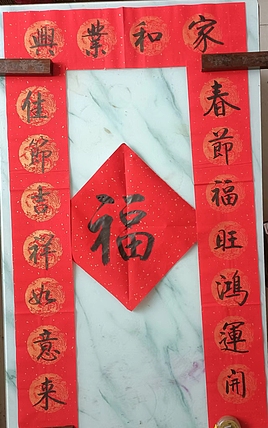 家和業興
春節福旺鴻運開
佳節吉祥如意来
福